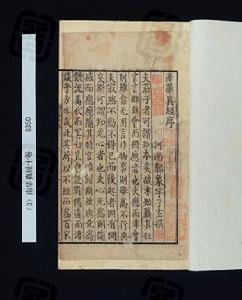 南華真經序
河南郭象字子玄撰
夫莊子者可謂知本矣故未始藏其狂
言言雖無會而獨應者也夫應而非會
則雖當無用言非物事則雖高不行與
夫寂然不動不得已而後起者固有間
矣斯可謂知無心者也夫心無為則隨
感而應應隨其時言唯謹爾故與化為
體流萬代而冥物豈曾設對獨遘而游
談乎方外哉此其所以不經而為百家
(3) 南华真經十卷 8350